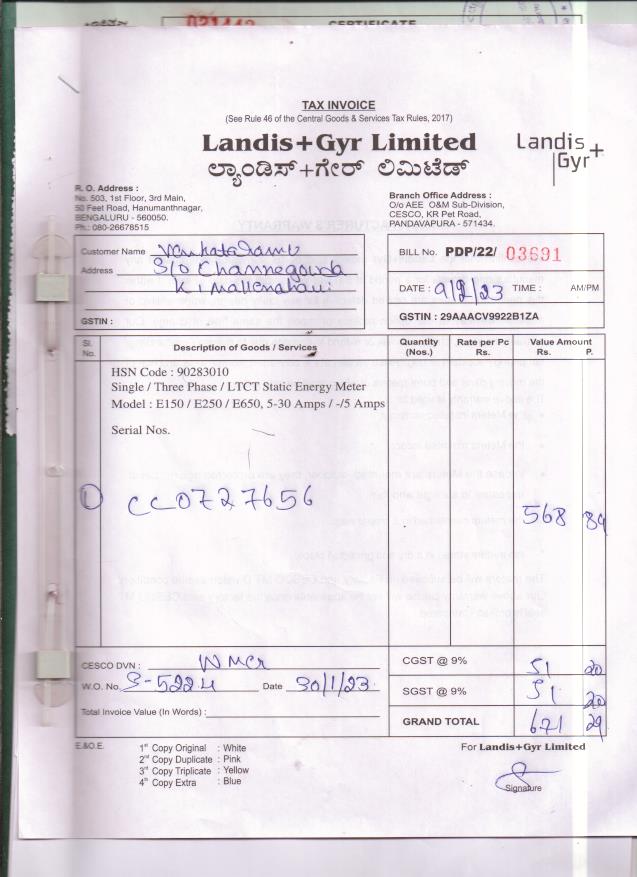 CERTIFICATE
TAX INVOICE
(See Rule 46 of the Central Goods & Services Tax Rules, 2017)
Landis+Gyr Limited
ಲ್ಯಾಂಡಿಸ್+ಗೇರ್ ಲಿಮಿಟೆಡ್
Landis
Gyr+
R. O. Address :
No. 503, 1st Floor, 3rd Main,
50 Feet Road, Hanumanthnagar,
BENGALURU - 560050.
Ph.: 080-26678515
Branch Office Address :
O/o AEE O&M Sub-Division,
CESCO, KR Pet Road,
PANDAVAPURA - 571434.
Customer Name Venkataramu
Address S/o Channegowda
GSTIN :
BILL No. PDP/22/ 03691
DATE : 9/2/23 TIME : AM/PM
GSTIN : 29AAACV9922B1ZA
Sl. No. Description of Goods / Services Quantity (Nos.) Rate per Pc Rs. Value Amount Rs. P.
HSN Code : 90283010
Single / Three Phase / LTCT Static Energy Meter
Model : E150 / E250 / E650, 5-30 Amps / -/5 Amps
Serial Nos.
① CC0727656 568 89
CESCO DVN :
W.O. No. 3-5224 Date 30/1/23
Total Invoice Value (In Words) :
CGST @ 9% 51 20
SGST @ 9% 51 20
GRAND TOTAL 671 29
E.&O.E.
1st Copy Original : White
2nd Copy Duplicate : Pink
3rd Copy Triplicate : Yellow
4th Copy Extra : Blue
For Landis+Gyr Limited
Signature